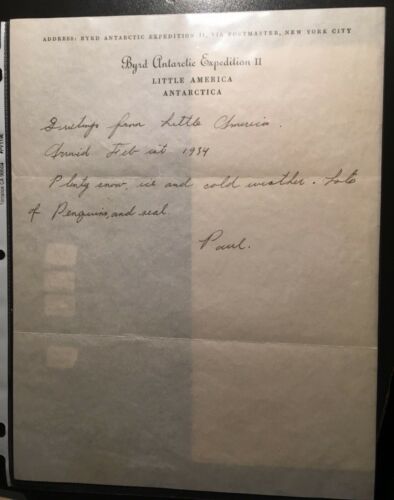 ADDRESS: BYRD ANTARCTIC EXPEDITION II, VIA POSTMASTER, NEW YORK CITY
Byrd Antarctic Expedition II
LITTLE AMERICA
ANTARCTICA
Greetings from Little America.
Arrived Feb 1st 1934
Plenty snow, ice and cold weather. Lots
of Penguins, and seal
Paul.